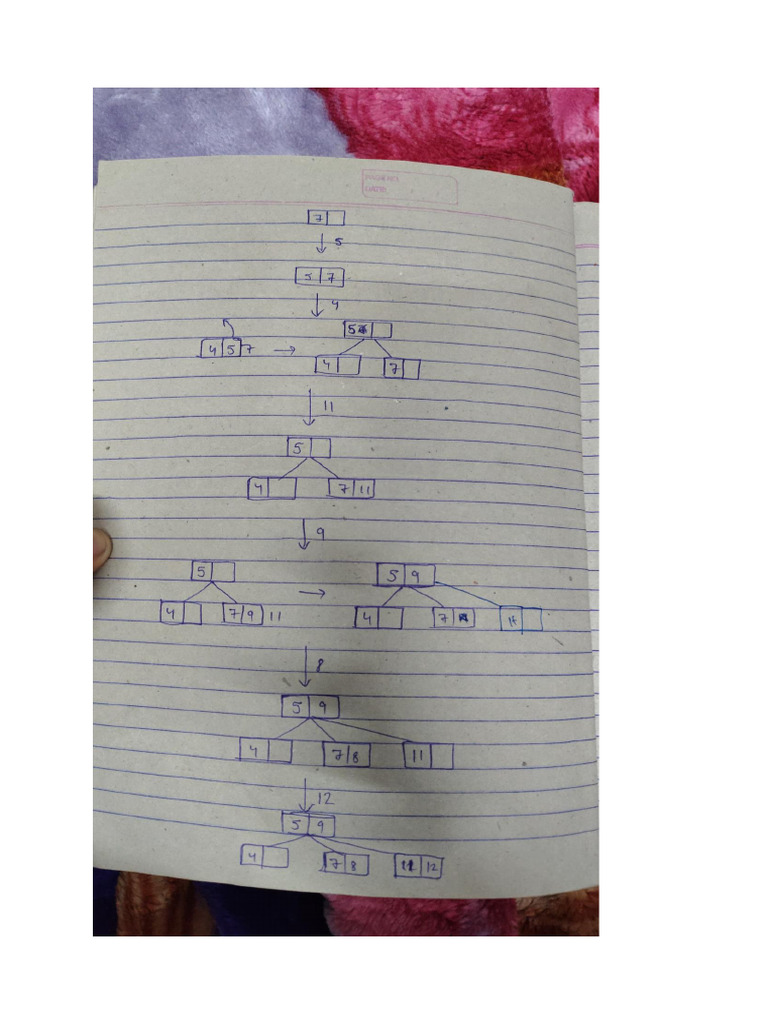 PAGE NO.:
DATE:
7
5
5 7
4
5
4 5 7 → 4 7
11
5
4 7 11
9
5 → 5 9
4 7 9 11 4 7 11
8
5 9
4 7 8 11
12
5 9
4 7 8 11 12